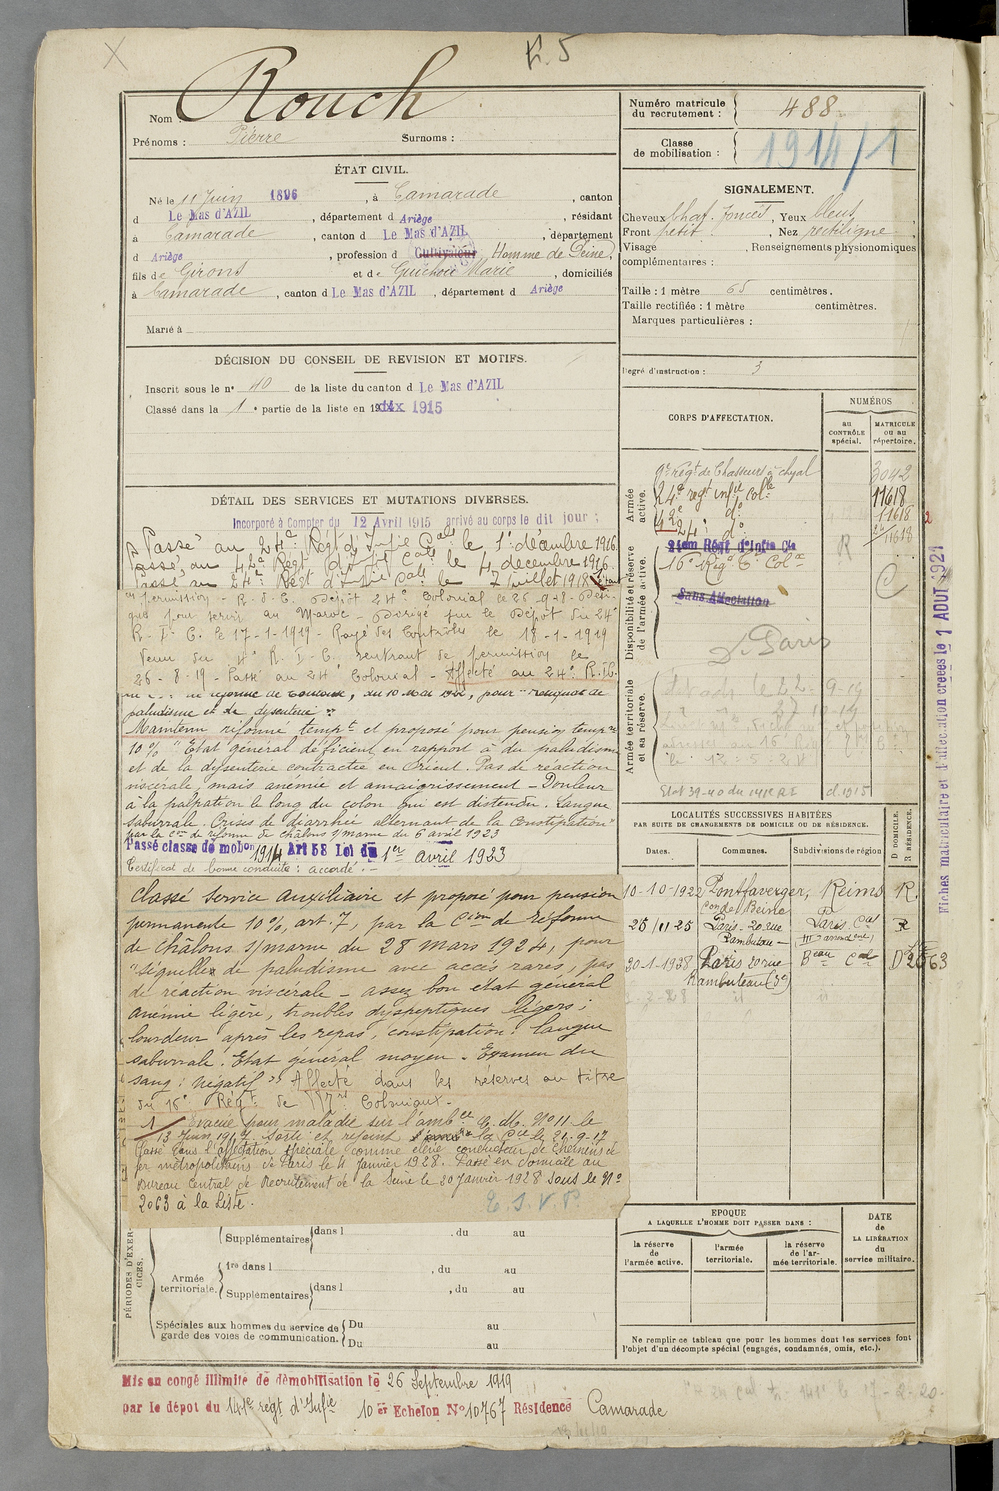 R. 5
Nom : Rouch
Prénoms : Pierre Surnoms :
ÉTAT CIVIL.
Né le 11 Juin 1896, à Camarade, canton
d Le Mas d'AZIL, département d Ariège, résidant
à Camarade, canton d Le Mas d'AZIL, département
d Ariège, profession d Cultivateur Homme de Peine
fils de Girons et de Guichou Marie, domiciliés
à Camarade, canton d Le Mas d'AZIL, département d Ariège
Marié à
DÉCISION DU CONSEIL DE REVISION ET MOTIFS.
Inscrit sous le n° 40 de la liste du canton d Le Mas d'AZIL
Classé dans la 1e partie de la liste en 1915
DÉTAIL DES SERVICES ET MUTATIONS DIVERSES.
Incorporé à Compter du 12 Avril 1915 arrivé au corps le dit jour ;
Passé au 24e Régt d'Infie Cale le 1er décembre 1916
Passé au 42e Régt d'Inf Cale le 4 decembre 1916
Passé au 24e Regt d'Infie Cale le 7 Juillet 1918
en permission - R. I. C. Dépôt 24e Colonial le 26-9-18
pour servir au Maroc Dirigé sur le Dépôt du 24e
R. I. C. le 17-1-1919 - Rayé des Contrôles le 18-1-1919
Venu du 4e R. I. C. rentrant de permission le
26-8-19 - Passé au 24e Colonial - Affecté au 24e R.I.C.
de réforme de Toulouse, du 10 Mai 1920, pour "reliquat de
paludisme et de dysenterie"
Maintenu réformé tempre et proposé pour pension tempre
10% "Etat général déficient en rapport à du paludisme
et de la dysenterie contractée en Orient. Pas de réaction
viscérale, mais anémie et amaigrissement - Douleur
à la palpation le long du colon qui est distendu. Langue
saburrale. Crises de diarrhée alternant de la constipation"
par la Con de réforme de Châlons s/marne du 6 avril 1923
Passé classe de mobon 1914 Art 58 Loi du 1er avril 1923
Certificat de bonne conduite : accordé.-
Classé Service auxiliaire et proposé pour pension
permanente 10%, art. 7, par la Cion de Réforme
de Châlons s/marne du 28 mars 1924, pour
"séquelles de paludisme avec accès rares, pas
de réaction viscérale - assez bon état général
anémie légère, troubles dyspeptiques légers ;
lourdeur après les repas, constipation. langue
saburrale. Etat général moyen. Examen du
sang : négatif" Affecté dans les réserves au titre
du 16e Régt de Colonial.
1 Evacué pour maladie sur l'ambce C. M. N° 11 le
13 Juin 1917. Sorti et rejoint la Cie le 21-9-17
Passé dans l'affectation spéciale comme élève conducteur de chemins de
fer métropolitains de Paris le 4 Janvier 1928. Passé en domicile au
Bureau Central de Recrutement de la Seine le 20 Janvier 1928 sous le N°
2063 à la liste.
PÉRIODES D'EXERCICES.
Supplémentaires dans l , du au
Armée territoriale.
1re dans l , du au
Supplémentaires dans l , du au
Spéciales aux hommes du service de garde des voies de communication.
Du au
Du au
Mis en congé illimité de démobilisation le 26 Septembre 1919
par le dépot du 141e régt d'Infie 10er Echelon N° 10767 Résidence Camarade
Numéro matricule du recrutement : 488
Classe de mobilisation : 1914/1
SIGNALEMENT.
Cheveux chat. foncés, Yeux bleus,
Front petit, Nez rectiligne,
Visage , Renseignements physionomiques
complémentaires :
Taille : 1 mètre 65 centimètres.
Taille rectifiée : 1 mètre centimètres.
Marques particulières :
Degré d'instruction : 3
CORPS D'AFFECTATION.
NUMÉROS
au CONTRÔLE spécial.
MATRICULE ou au répertoire.
Armée active.
9e régt de Chasseurs à cheval 3042
24e regt infie Colle 11618
42e do 11618
24e do 11618
Disponibilité et réserve de l'armée active.
24em Régt d'Infie Cle R
16e Col
Sans Affectation
Paris
Armée territoriale et sa réserve.
Etat 39-40 du 141e R I cl. 1915
LOCALITÉS SUCCESSIVES HABITÉES
PAR SUITE DE CHANGEMENTS DE DOMICILE OU DE RÉSIDENCE.
Dates. Communes. Subdivisions de région D DOMICILE. R RÉSIDENCE.
10-10-1922 Pontfaverger, Con de Beine Reims R.
25/11 25 Paris - 20 rue Rambuteau - Paris Cal (III arrondent) R
20-1-1928 Paris 20 rue Rambuteau (3e) Beau Cal D 2063
EPOQUE
A LAQUELLE L'HOMME DOIT PASSER DANS :
la réserve de l'armée active.
l'armée territoriale.
la réserve de l'armée territoriale.
DATE de LA LIBÉRATION du service militaire.
Ne remplir ce tableau que pour les hommes dont les services font
l'objet d'un décompte spécial (engagés, condamnés, omis, etc.).
Fiches matriculaire et d'affectation créées le 1 AOUT 1921